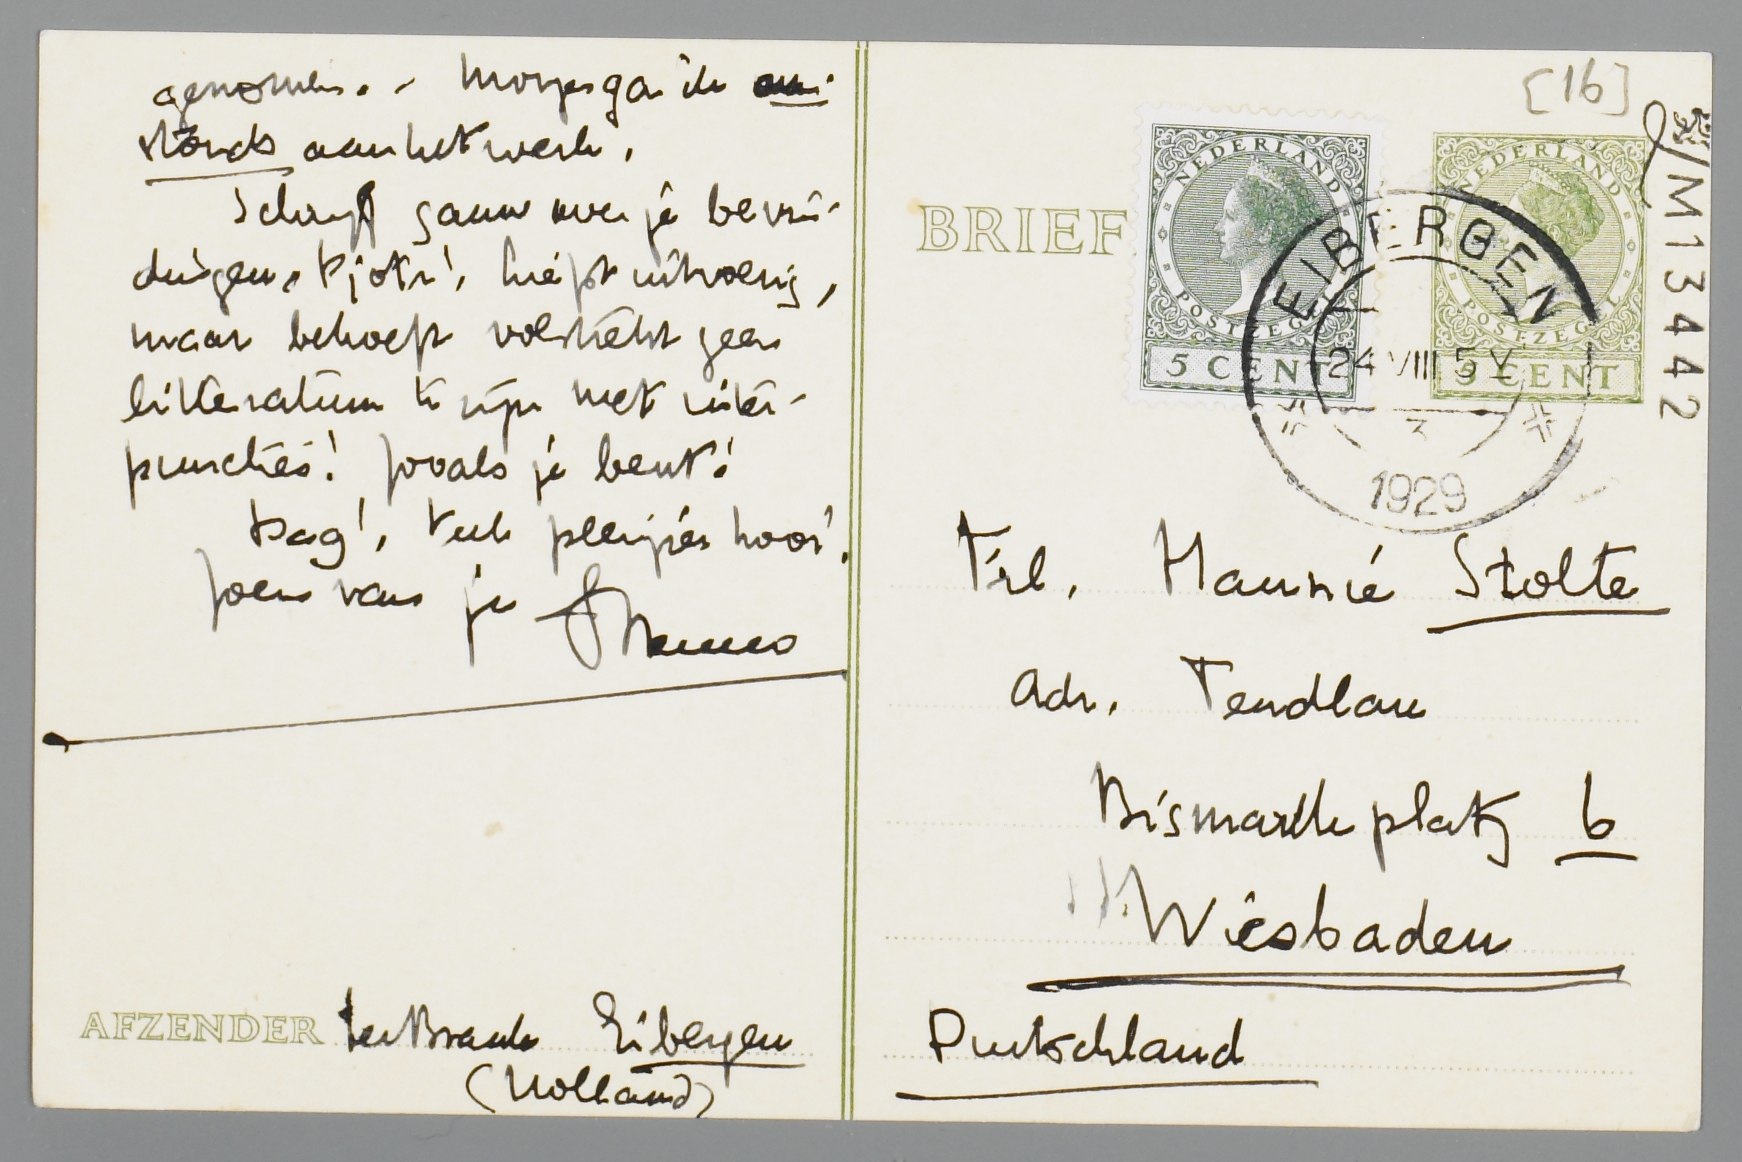 genomen. - Morgen ga ik on-
stands aan het werk.
Schrijf gauw over je bevin-
dingen, liefst uitvoerig,
maar behoeft volstrekt geen
litteratuur te zijn met inter-
puncties! Zooals je bent!
Dag! Veel pleizier hoor!
Zoen van je
Menno
AFZENDER ter Braak Eibergen
(Holland)
[16]
M13442
BRIEF
NEDERLAND
POSTZEGEL
5 CENT
NEDERLAND
POSTZEGEL
5 CENT
EIBERGEN
24 VIII 5 V
3
1929
Frl. Hannie Stolte
adr. Tendlau
Bismarckplatz 6
Wiesbaden
Deutschland